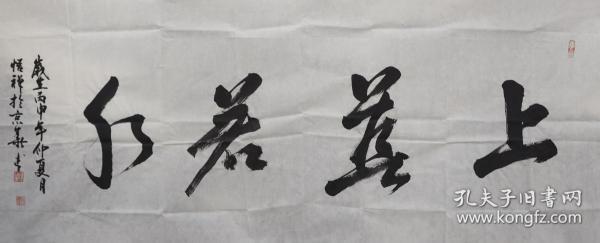 上善若水
歲在丙申年仲夏月
悟祥於京華
孔夫子旧书网
www.kongfz.com